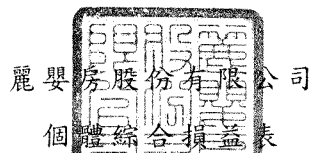 麗嬰房股份有限公司
個體綜合損益表